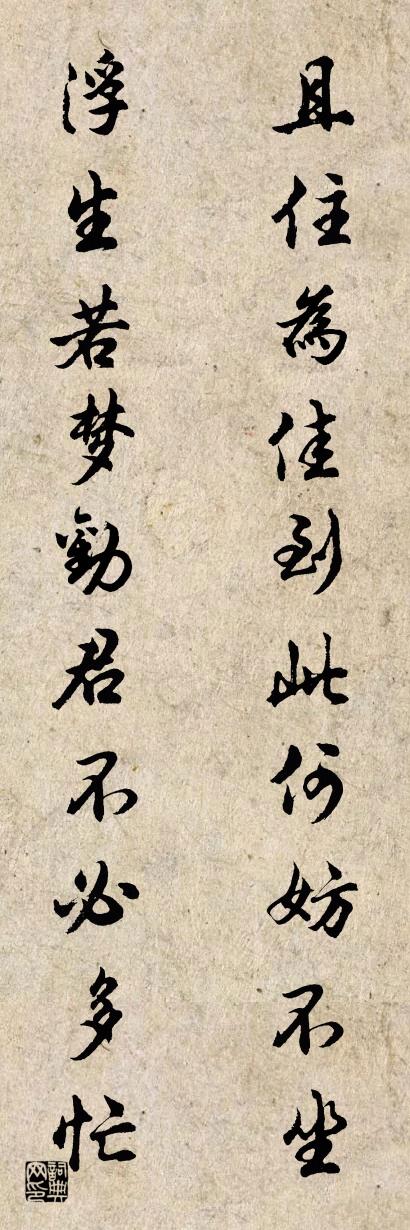 且住為佳到此何妨不坐
浮生若梦勸君不必多忙
詞典网印